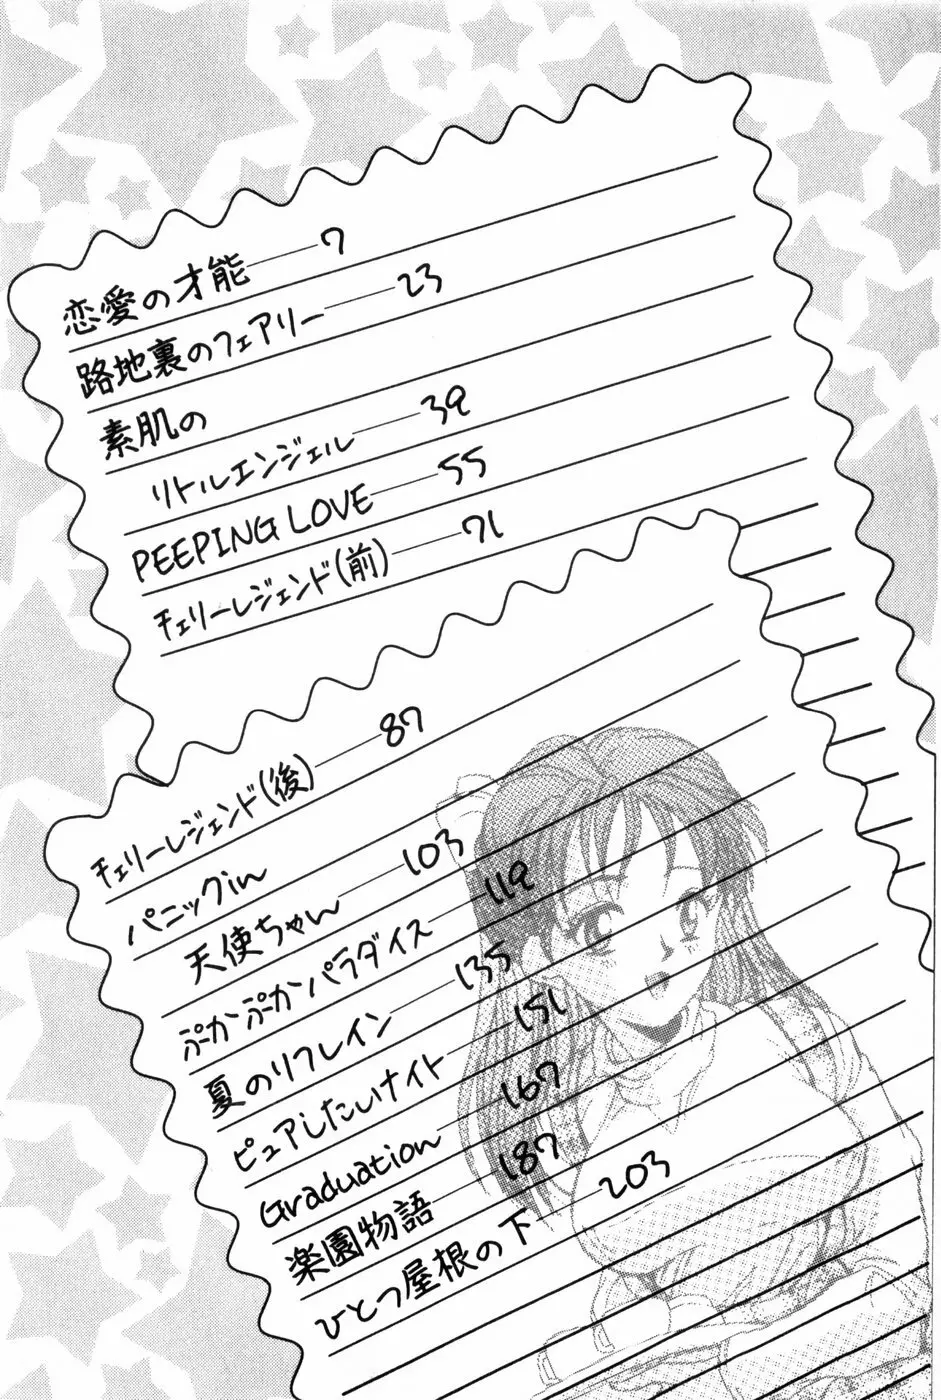 恋愛の才能――7
路地裏のフェアリー――23
素肌の
リトルエンジェル――39
PEEPING LOVE――55
チェリーレジェンド(前)――71
チェリーレジェンド(後)――87
パニックin
天使ちゃん――103
ぷかぷかンパラダイス――119
夏のリフレイン――135
ピュアしたいナイト――151
Graduation――167
楽園物語――187
ひとつ屋根の下――203